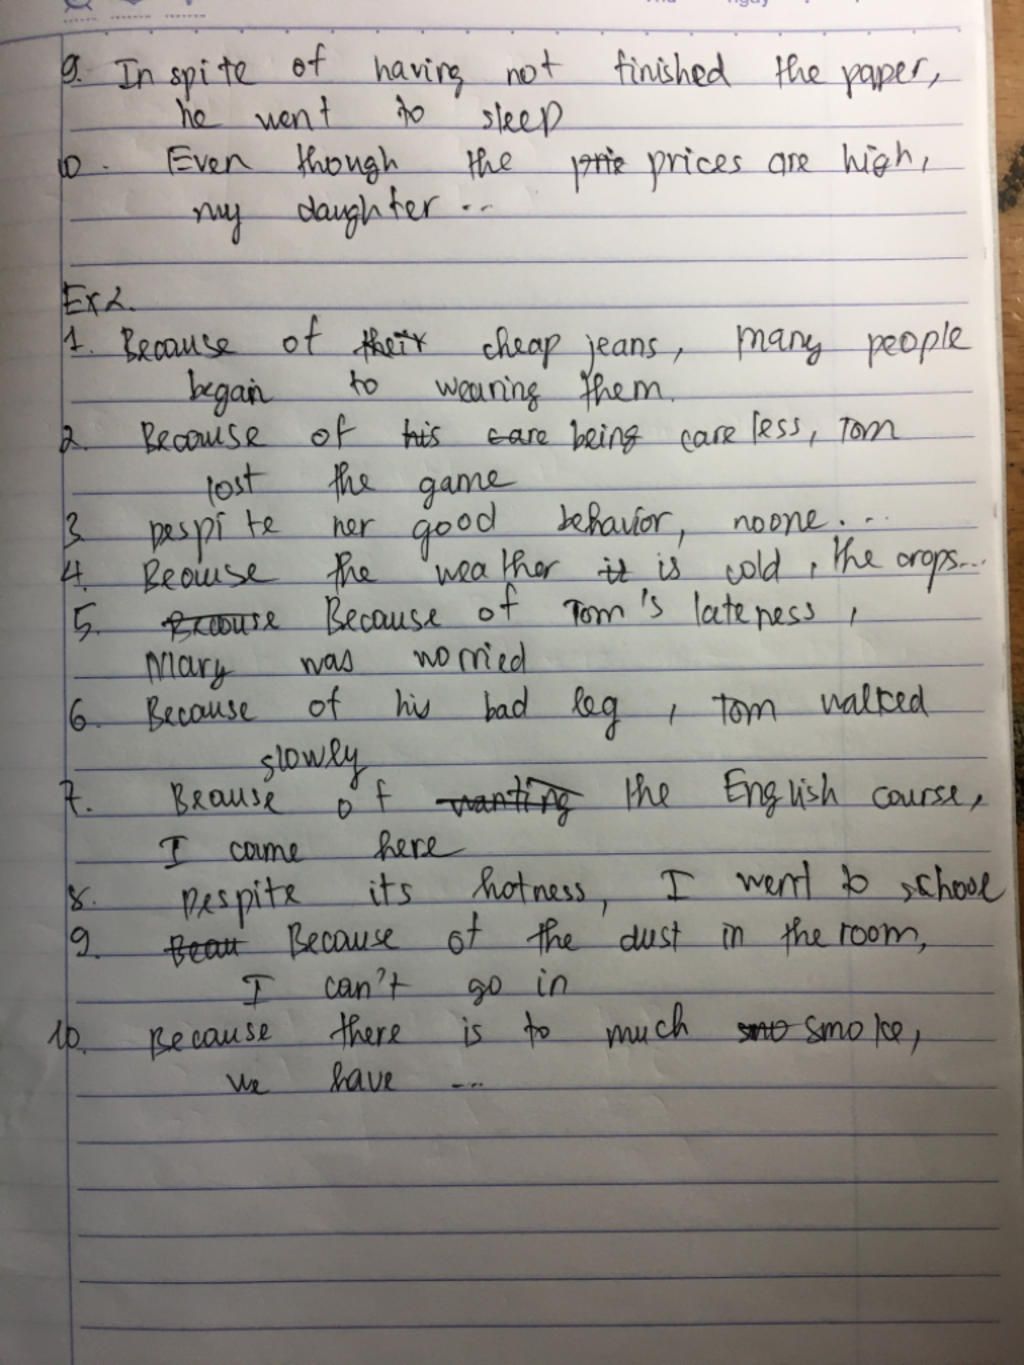 9. In spite of having not finished the paper,
he went to sleep
10. Even though the prie prices are high,
my daughter ...
Ex 2.
1. Because of their cheap jeans, many people
began to wearing them.
2. Because of his care being careless, Tom
lost the game
3. Despite her good behavior, noone...
4. Because the weather it is cold, the crops...
5. Because Because of Tom's lateness,
Mary was worried
6. Because of his bad leg, Tom walked
slowly
7. Because of wanting the English course,
I came here
8. Despite its hotness, I went to school
9. Becau Because of the dust in the room,
I can't go in
10. Because there is to much smo smoke,
we have ...